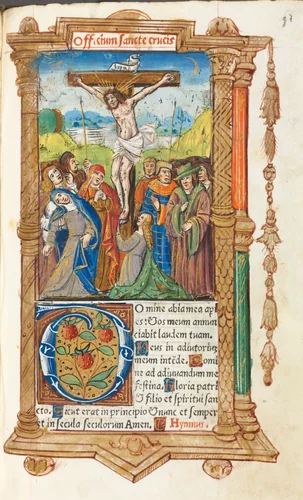 Officium sancte crucis
Domine labia mea api
es: Et os meum annun
ciabit laudem tuam.
Deus in adiutoriũ
meum intẽde. Domi
ne ad adiuvandum me
festina. Gloria patri
& filio et spiritui san
cto. Sicut erat in principio & nunc et semper
et in secula seculorum Amen. Hymnus.